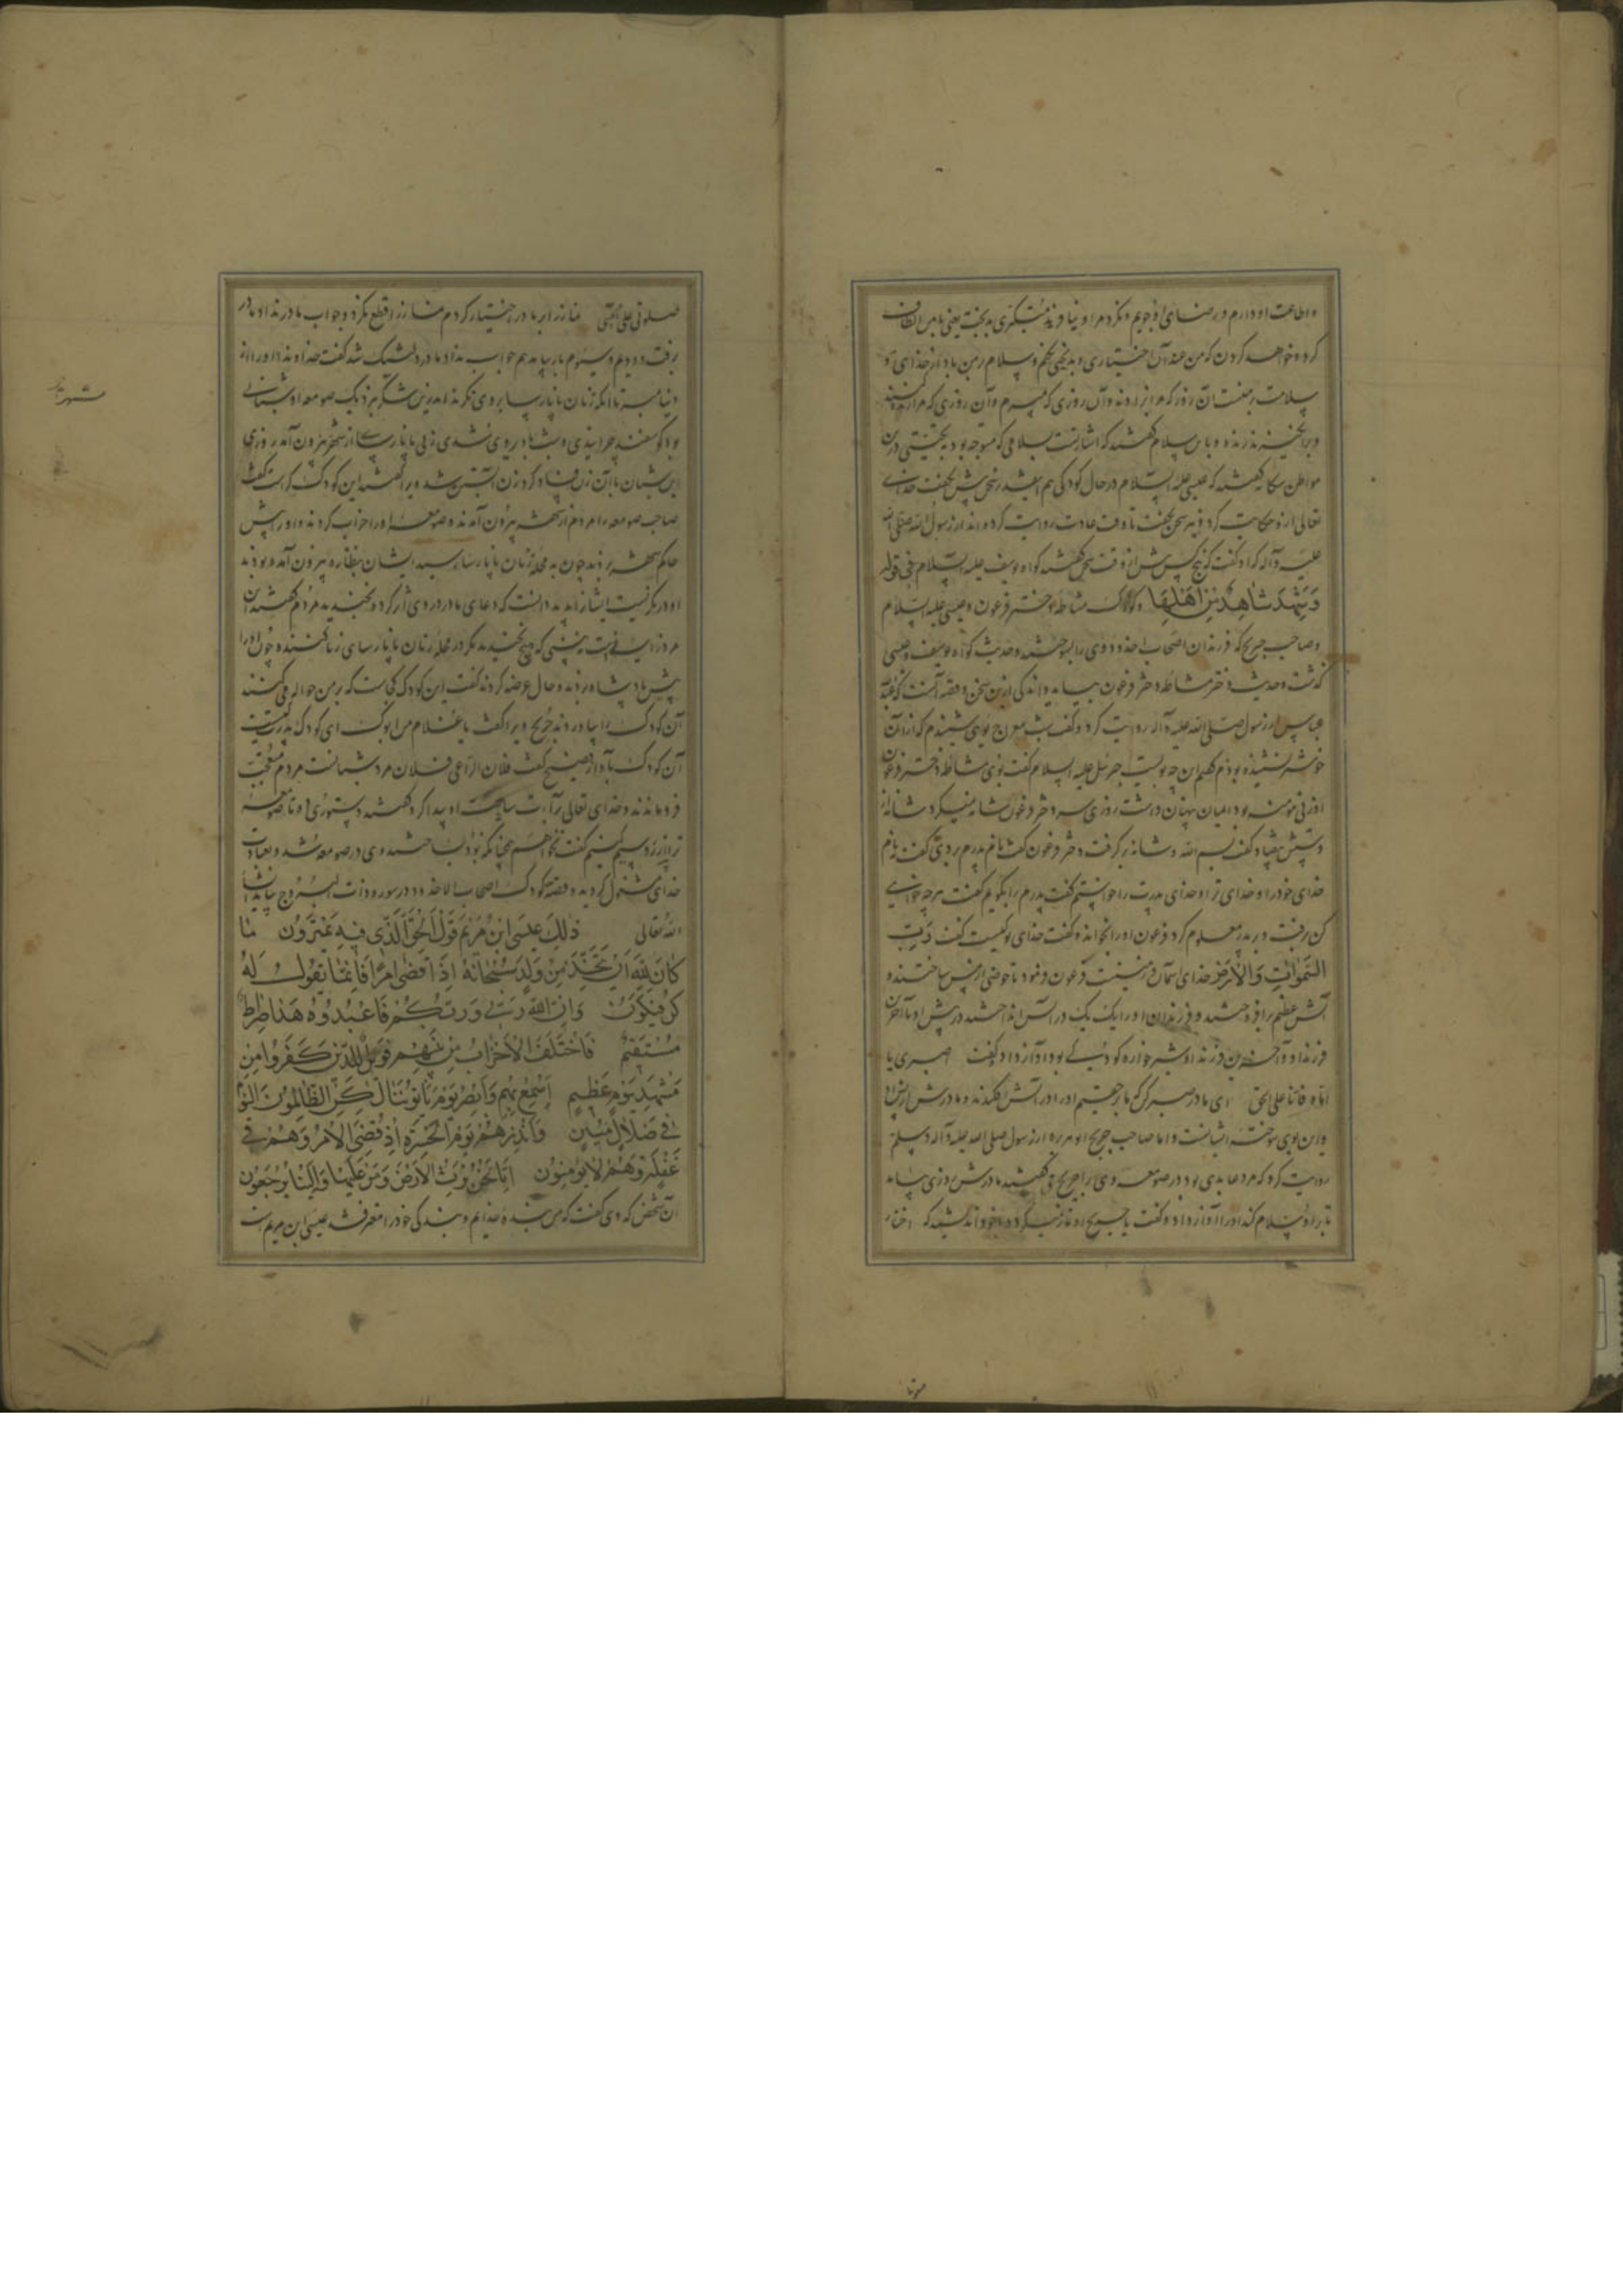 و اطاعت او دارم و رضای او جویم و نکرد مرا و نیافرید متکبری بدبخت یعنی با من الطاف
کرد و خواهد کردن که من عند آن اختیاری و بدبختی نکنم و سلام بر من باد از خدای تو
سلامت رمنت آن روز که مرا بزادند و آن روزی که بمیرم و آن روزی که مرا زنده کنند
و برانگیزند زنده و با من سلام گفتند که اشارتست بسلامی که متوجه بود بیحیی درین
مواطن سه‌گانه گفتند که عیسی علیه السلام در حال کودکی هم این قدر سخن بیش نگفت خدای
تعالی ازو حکایت کرد و نیز سخن نگفت تا وقت عادت روایت کرده‌اند از رسول الله صلی الله
علیه و آله که او گفت که پنج کس پیش از وقت سخن گفتند گواه یوسف علیه السلام فی قوله
وَشَهِدَ شَاهِدٌ مِنْ أَهْلِهَا و کودک مشاطه دختر فرعون و عیسی علیه السلام
و صاحب جریج که فرزندان اصحاب اخدود وی را بسوختند و حدیث گواه یوسف و عیسی
گذشت و حدیث دختر مشاطه دختر فرعون بیاید و اندکی ازین سخن و قصه آنست که عبدالله
عباس از رسول صلی الله علیه و آله روایت کرد که گفت شب معراج بوی شنیدم که از آن
خوشتر نشنیده بودم گفتم این چه بویست جبرئیل علیه السلام گفت بوی مشاطه دختر فرعون
او زنی مؤمنه بود ایمان پنهان داشت روزی سر دختر فرعون شانه میکرد شانه از
دستش بیفتاد گفت بسم الله و شانه بر گرفت دختر فرعون گفت نام پدرم بردی گفت نه نام
خدای خود را و خدای ترا و خدای پدرت را خواستم گفت پدرم را بگویم گفت هر چه خواهی
کن برفت و پدر معلوم کرد فرعون او را بخواند و گفت خدای تو کیست گفت رَبُّ
السَّمَوَاتِ وَالْأَرْضِ خدای آسمان و زمینست فرعون فرمود تا حوضی از مس ساختند و
آتش عظیم برافروختند و فرزندان او را یک یک در آتش انداختند در پیش او تا آخرین
فرزند او و آخرین فرزند او شیرخواره کودکی بود او آواز داد و گفت اصبری یا
اماه فانا علی الحق ای مادر صبر کن که ما بر حقیم او را در آتش فکندند و مادرش از پس او
و این بوی سوخته ایشانست و اما صاحب جریج ابو هریره از رسول صلی الله علیه و آله و سلم
روایت کرد که مرد عابدی بود در صومعه وی را جریج گفتند مادرش روزی بیامد
تا بر او سلام کند او را آواز داد و گفت یا جریج او نماز میکرد و با خود اندیشید که اختار
صلوتی علی امی نماز را بر مادر اختیار کردم نماز را قطع نکرد و جواب مادر نداد مادر
برفت و دوم و سیوم بار بیامد هم جواب نداد مادر دلتنگ شد گفت خداوندا او را از
دنیا مبر تا آنکه زنان ناپارسا بر وی نگرند اندرین شهر نزدیک صومعه او شبانی
بود گوسفند چرانیدی و شب با بروی شدی زنی ناپارسا از شهر بیرون آمد روزی
این شبان با آن زن فساد کرد زن آبستن شد ویرا گفتند این کودک کراست گفت
صاحب صومعه را مردم از شهر بیرون آمدند و صومعه او را خراب کردند و او را پیش
حاکم شهر بردند چون به محله زنان ناپارسا رسید ایشان بنظاره بیرون آمده بودند
او در نگریست ایشانرا بدید دانست که دعای مادر در وی اثر کرد و بخندید مردم گفتند این
مرد زانی است نه‌بینی که هیچ نخندید مگر در محله زنان ناپارسای زناکننده و چون او را
پیش پادشاه بردند و حال عرضه کردند گفت این کودک کی است که بر من حواله می کنند
آن کودک را بیاوردند جریج ویرا گفت یا غلام من ابوک ای کودک پدرت کیست
آن کودک بآواز فصیح گفت فلان الراعی فلان مرد شبانست مردم متعجب
فرو ماندند و خدای تعالی برآءت ساحت او پیدا کرد گفتند دستوری ده تا صومعه
تو از زر و سیم کنیم گفت نخواهم همچنانکه بود بساختند وی در صومعه شد و بعبادت
خدای مشغول گردید و قصه کودک اصحاب الاخدود در سوره ذات البروج بیاید ان‌شا
الله تعالی ذَلِكَ عِيسَى ابْنُ مَرْيَمَ قَوْلَ الْحَقِّ الَّذِي فِيهِ يَمْتَرُونَ مَا
كَانَ لِلَّهِ أَنْ يَتَّخِذَ مِنْ وَلَدٍ سُبْحَانَهُ إِذَا قَضَى أَمْرًا فَإِنَّمَا يَقُولُ لَهُ
كُنْ فَيَكُونُ وَإِنَّ اللَّهَ رَبِّي وَرَبُّكُمْ فَاعْبُدُوهُ هَذَا صِرَاطٌ
مُسْتَقِيمٌ فَاخْتَلَفَ الْأَحْزَابُ مِنْ بَيْنِهِمْ فَوَيْلٌ لِلَّذِينَ كَفَرُوا مِنْ
مَشْهَدِ يَوْمٍ عَظِيمٍ أَسْمِعْ بِهِمْ وَأَبْصِرْ يَوْمَ يَأْتُونَنَا لَكِنِ الظَّالِمُونَ الْيَوْمَ
فِي ضَلَالٍ مُبِينٍ وَأَنْذِرْهُمْ يَوْمَ الْحَسْرَةِ إِذْ قُضِيَ الْأَمْرُ وَهُمْ فِي
غَفْلَةٍ وَهُمْ لَا يُؤْمِنُونَ إِنَّا نَحْنُ نَرِثُ الْأَرْضَ وَمَنْ عَلَيْهَا وَإِلَيْنَا يُرْجَعُونَ
آن شخص که وی گفت که من بنده خدایم و بندگی خود را معترفست عیسی ابن مریم است